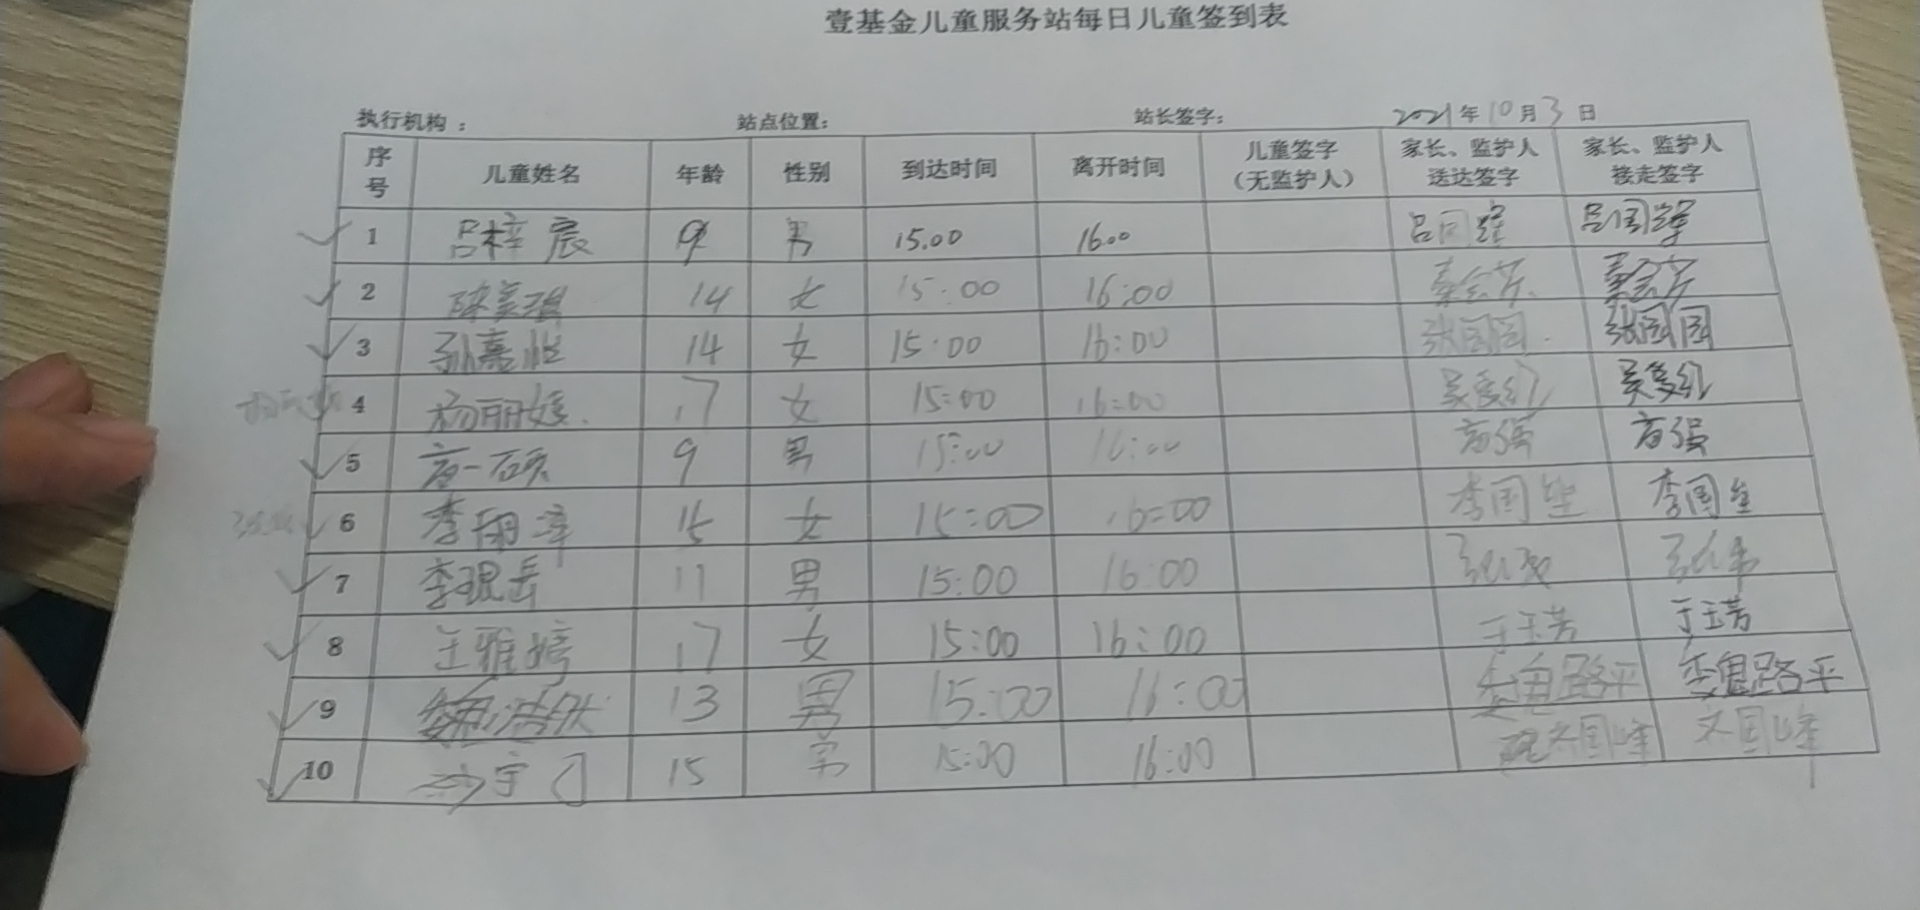 壹基金儿童服务站每日儿童签到表
执行机构： 站点位置： 站长签字： 2021年10月3日
序号 儿童姓名 年龄 性别 到达时间 离开时间 儿童签字（无监护人） 家长、监护人送达签字 家长、监护人接走签字
1 吕梓宸 9 男 15.00 16.00
2 14 女 15:00 16:00
3 孙嘉怡 14 女 15:00 16:00 张园园 张园园
4 杨丽媛 17 女 15:00 16:00
5 一硕 9 男 15:00 16:00
6 李 15 女 15:00 16:00 李国 李国
7 李琨岳 11 男 15:00 16:00
8 王雅婷 17 女 15:00 16:00 于玉芳 于玉芳
9 魏浩然 13 男 15:00 16:00 魏路平 魏路平
10 15 男 15:00 16:00 文国峰 文国峰